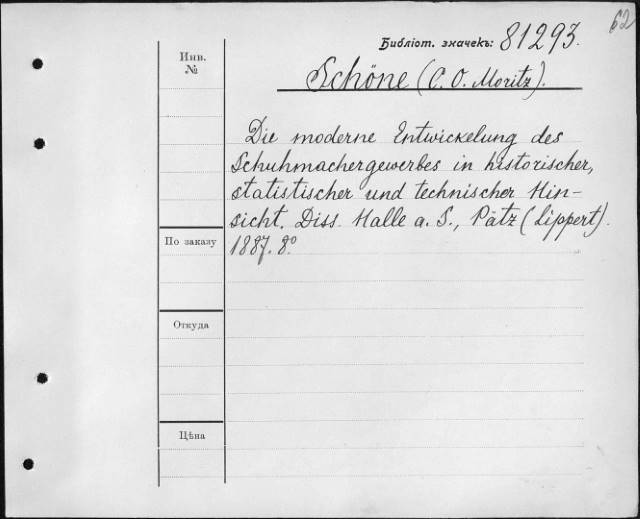 62
Библіот. значекъ: 81293.
Инв.
№
Schöne (C. O. Moritz).
Die moderne Entwickelung des
Schuhmachergewerbes in historischer,
statistischer und technischer Hin-
sicht. Diss. Halle a. S., Pätz (Lippert).
1887. 8°
По заказу
Откуда
Цѣна